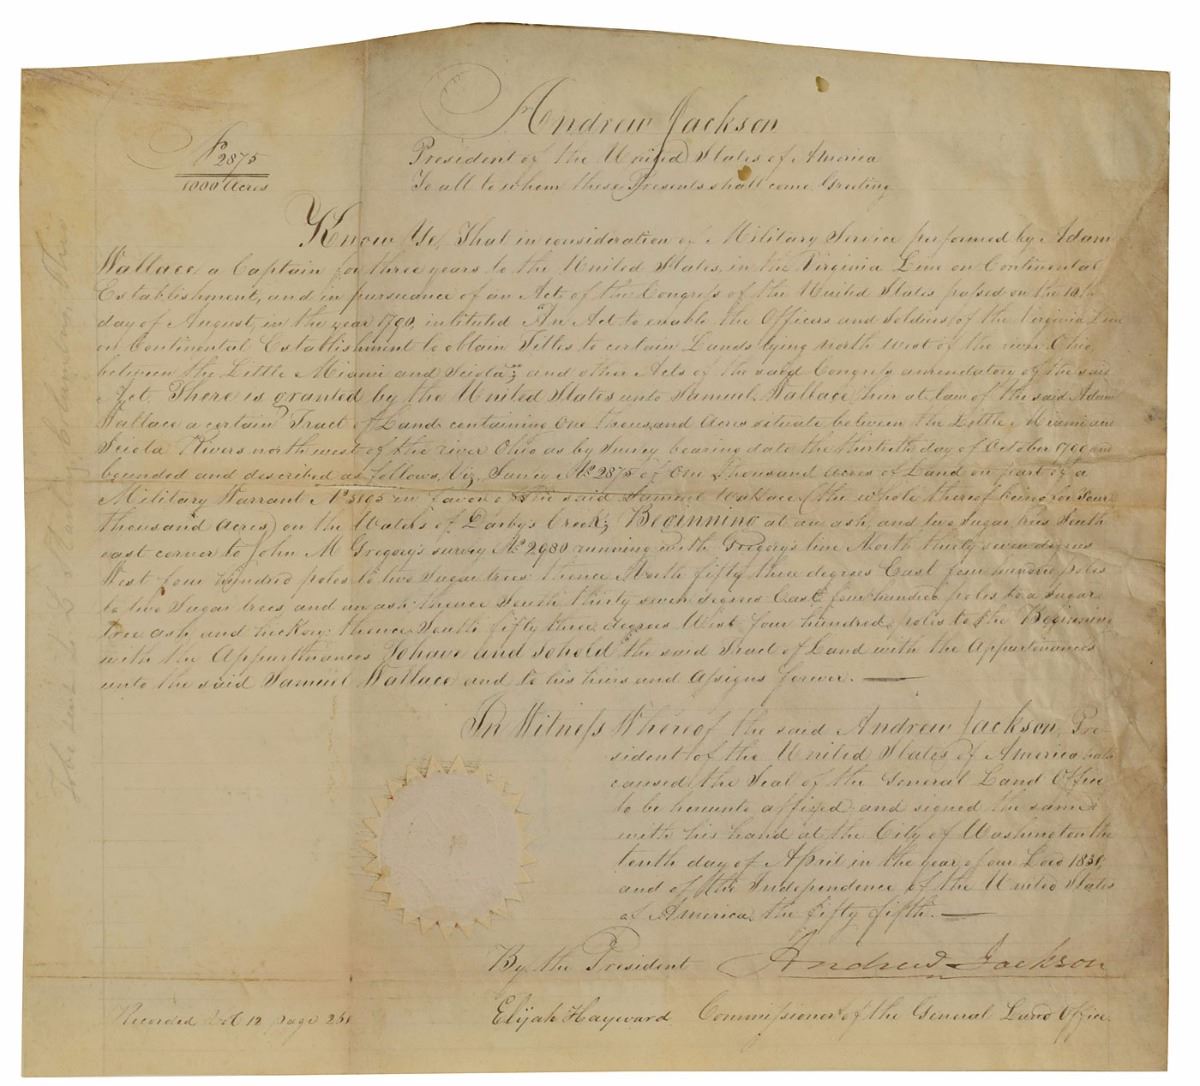 Andrew Jackson
President of the United States of America
To all to whom these Presents shall come Greeting
No 2875
1000 Acres
Know Ye, That in consideration of Military Service performed by Adam
Wallace a Captain for three years to the United States, in the Virginia Line on Continental
Establishment, and in pursuance of an Act of the Congress of the United States passed on the 10th
day of August, in the year 1790, intituled An Act to enable the Officers and Soldiers of the Virginia Line
on Continental Establishment to obtain Titles to certain Lands lying north west of the river Ohio
between the Little Miami and Sciota; and other Acts of the said Congress amendatory of the said
Act. There is granted by the United States unto Samuel Wallace, heir at law of the said Adam
Wallace a certain Tract of Land containing One thousand Acres situate between the Little Miami and
Sciota Rivers north west of the river Ohio as by Survey bearing date the thirtieth day of October and
bounded and described as follows, Viz, Survey No 2875 of One thousand acres of Land on part of a
Military Warrant No in favor of the said Samuel Wallace (the whole thereof being for Four
thousand Acres) on the Waters of Darby's Creek; Beginning at an ash, and two Sugar trees South
east corner to John M Gregory's survey No 2980 running with Gregory's line North thirty seven degrees
West four hundred poles to two Sugar trees thence North fifty three degrees East four hundred poles
to two Sugar trees and an ash; thence South thirty seven degrees East four hundred poles to a sugar
tree ash and hickory thence South fifty three degrees West four hundred poles to the Beginning
with the Appurtinances To have and to hold the said Tract of Land with the Appurtinances
unto the said Samuel Wallace and to his heirs and assigns forever.
In Witness Whereof the said Andrew Jackson, Pre-
sident of the United States of America hath
caused the Seal of the General Land Office
to be hereunto affixed and signed the same
with his hand at the City of Washington the
tenth day of April in the year of our Lord 1831,
and of the Independence of the United States
of America the fifty fifth.
By the President Andrew Jackson
Elijah Hayward Commissioner of the General Land Office.
Recorded Vol 12 page